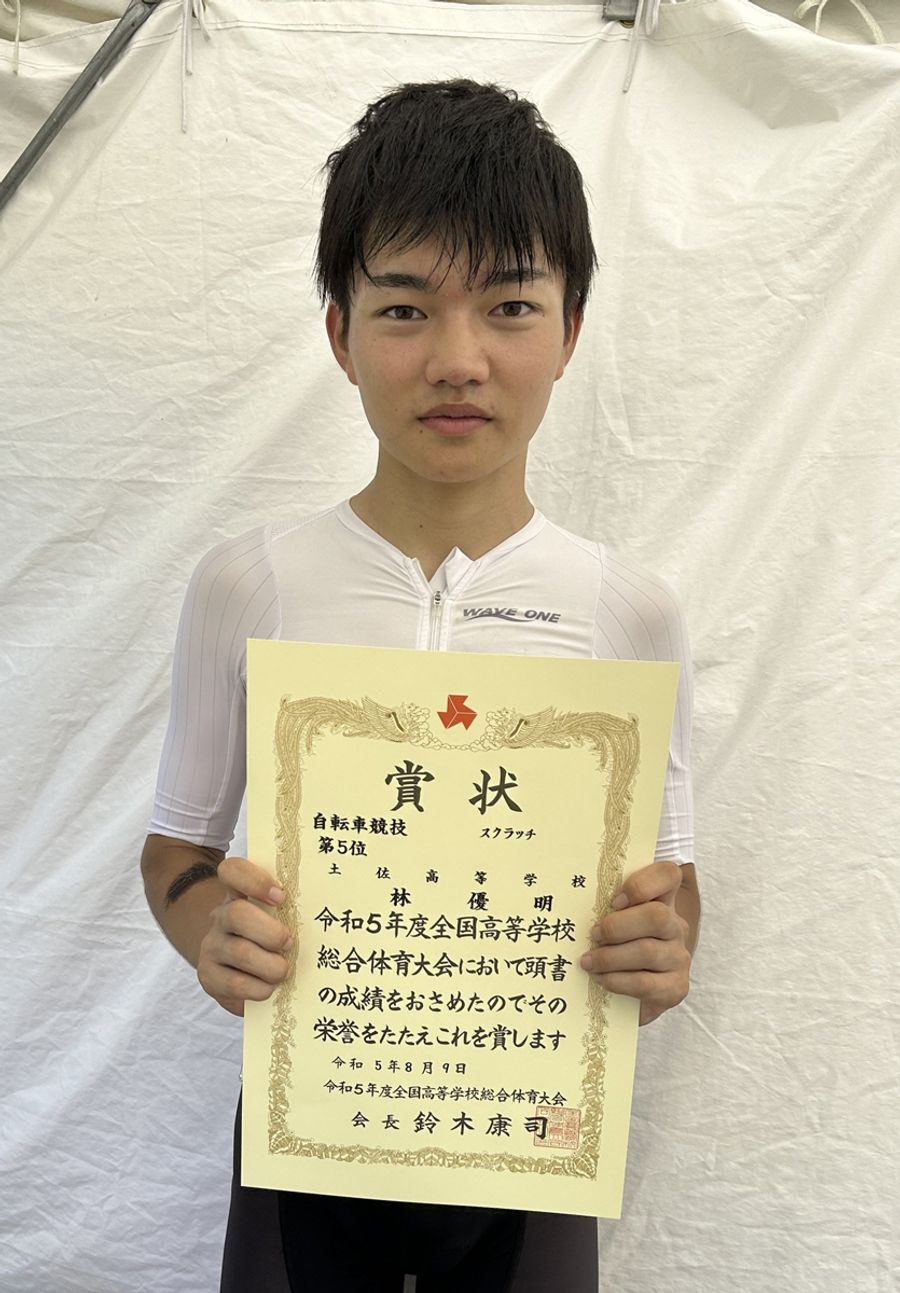 WAVE ONE
賞状
自転車競技 スクラッチ
第5位
土佐高等学校
林優明
令和5年度全国高等学校
総合体育大会において頭書
の成績をおさめたのでその
栄誉をたたえこれを賞します
令和5年8月9日
令和5年度全国高等学校総合体育大会
会長 鈴木康司